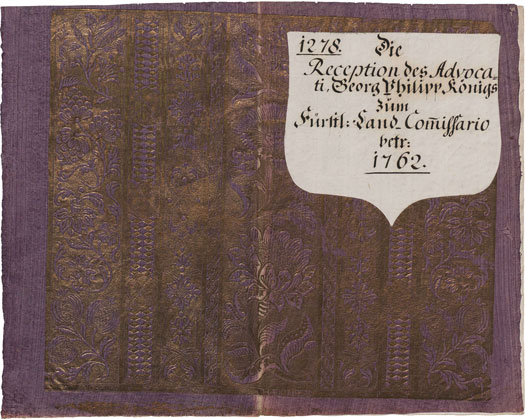 1278. Die
Reception des Advoca-
ti. Georg Philipp Königs
zum
Fürstl: Land Com̄issario
betr:
1762.